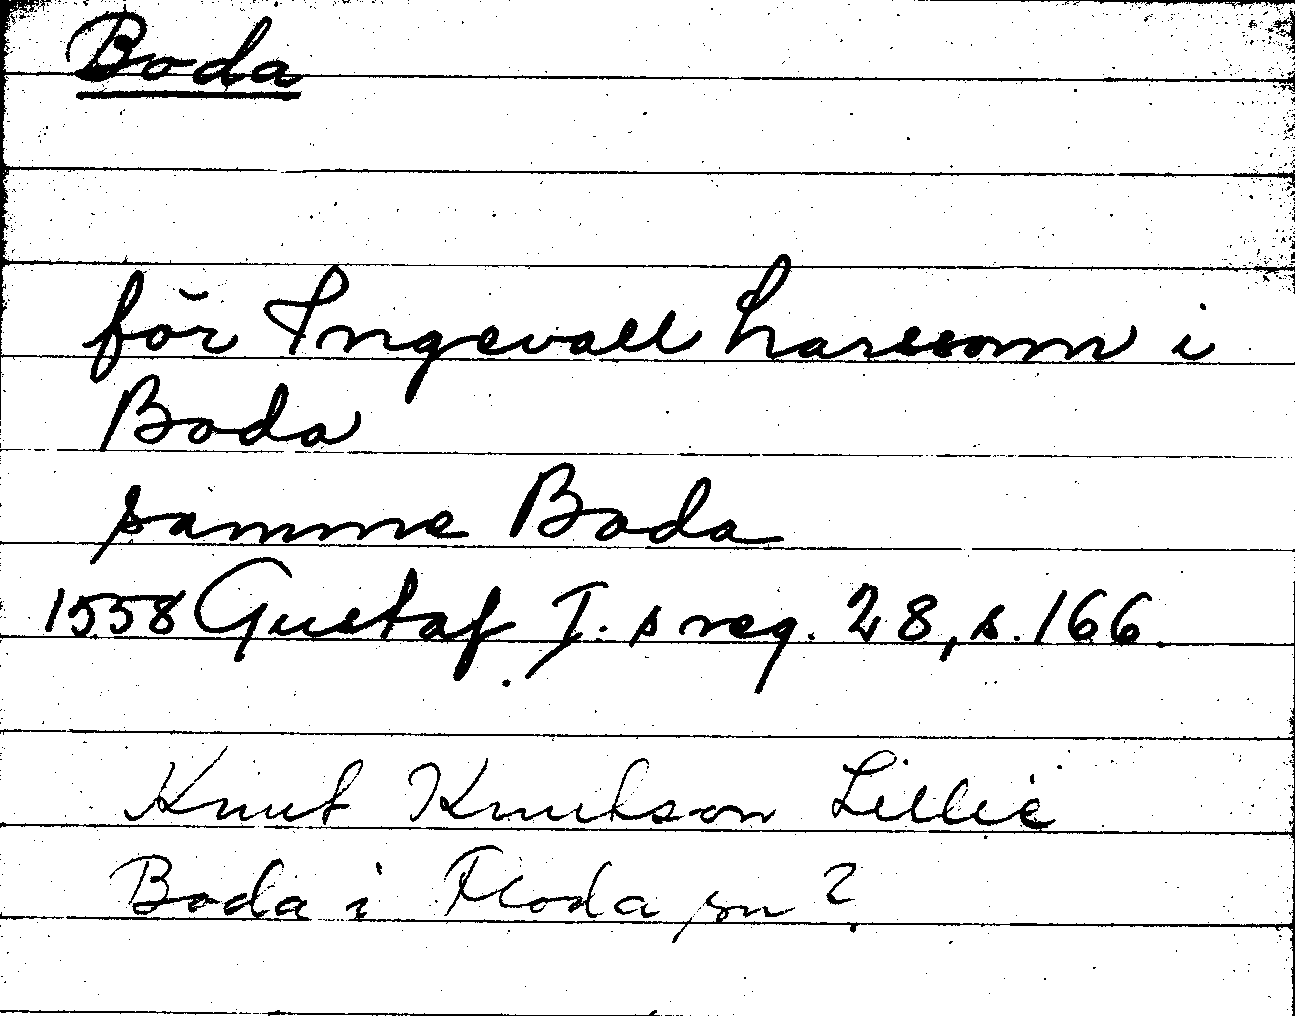 Boda
för Ingevall Larssonn i
Boda
samme Boda
1558 Gustaf I. s reg. 28, s. 166.
Knut Knutson Lillie
Boda i Floda sn?